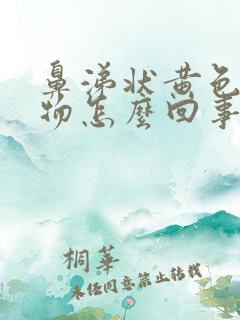 鼻涕状黄色
物怎麼回事
桐華
未经同意禁止转载